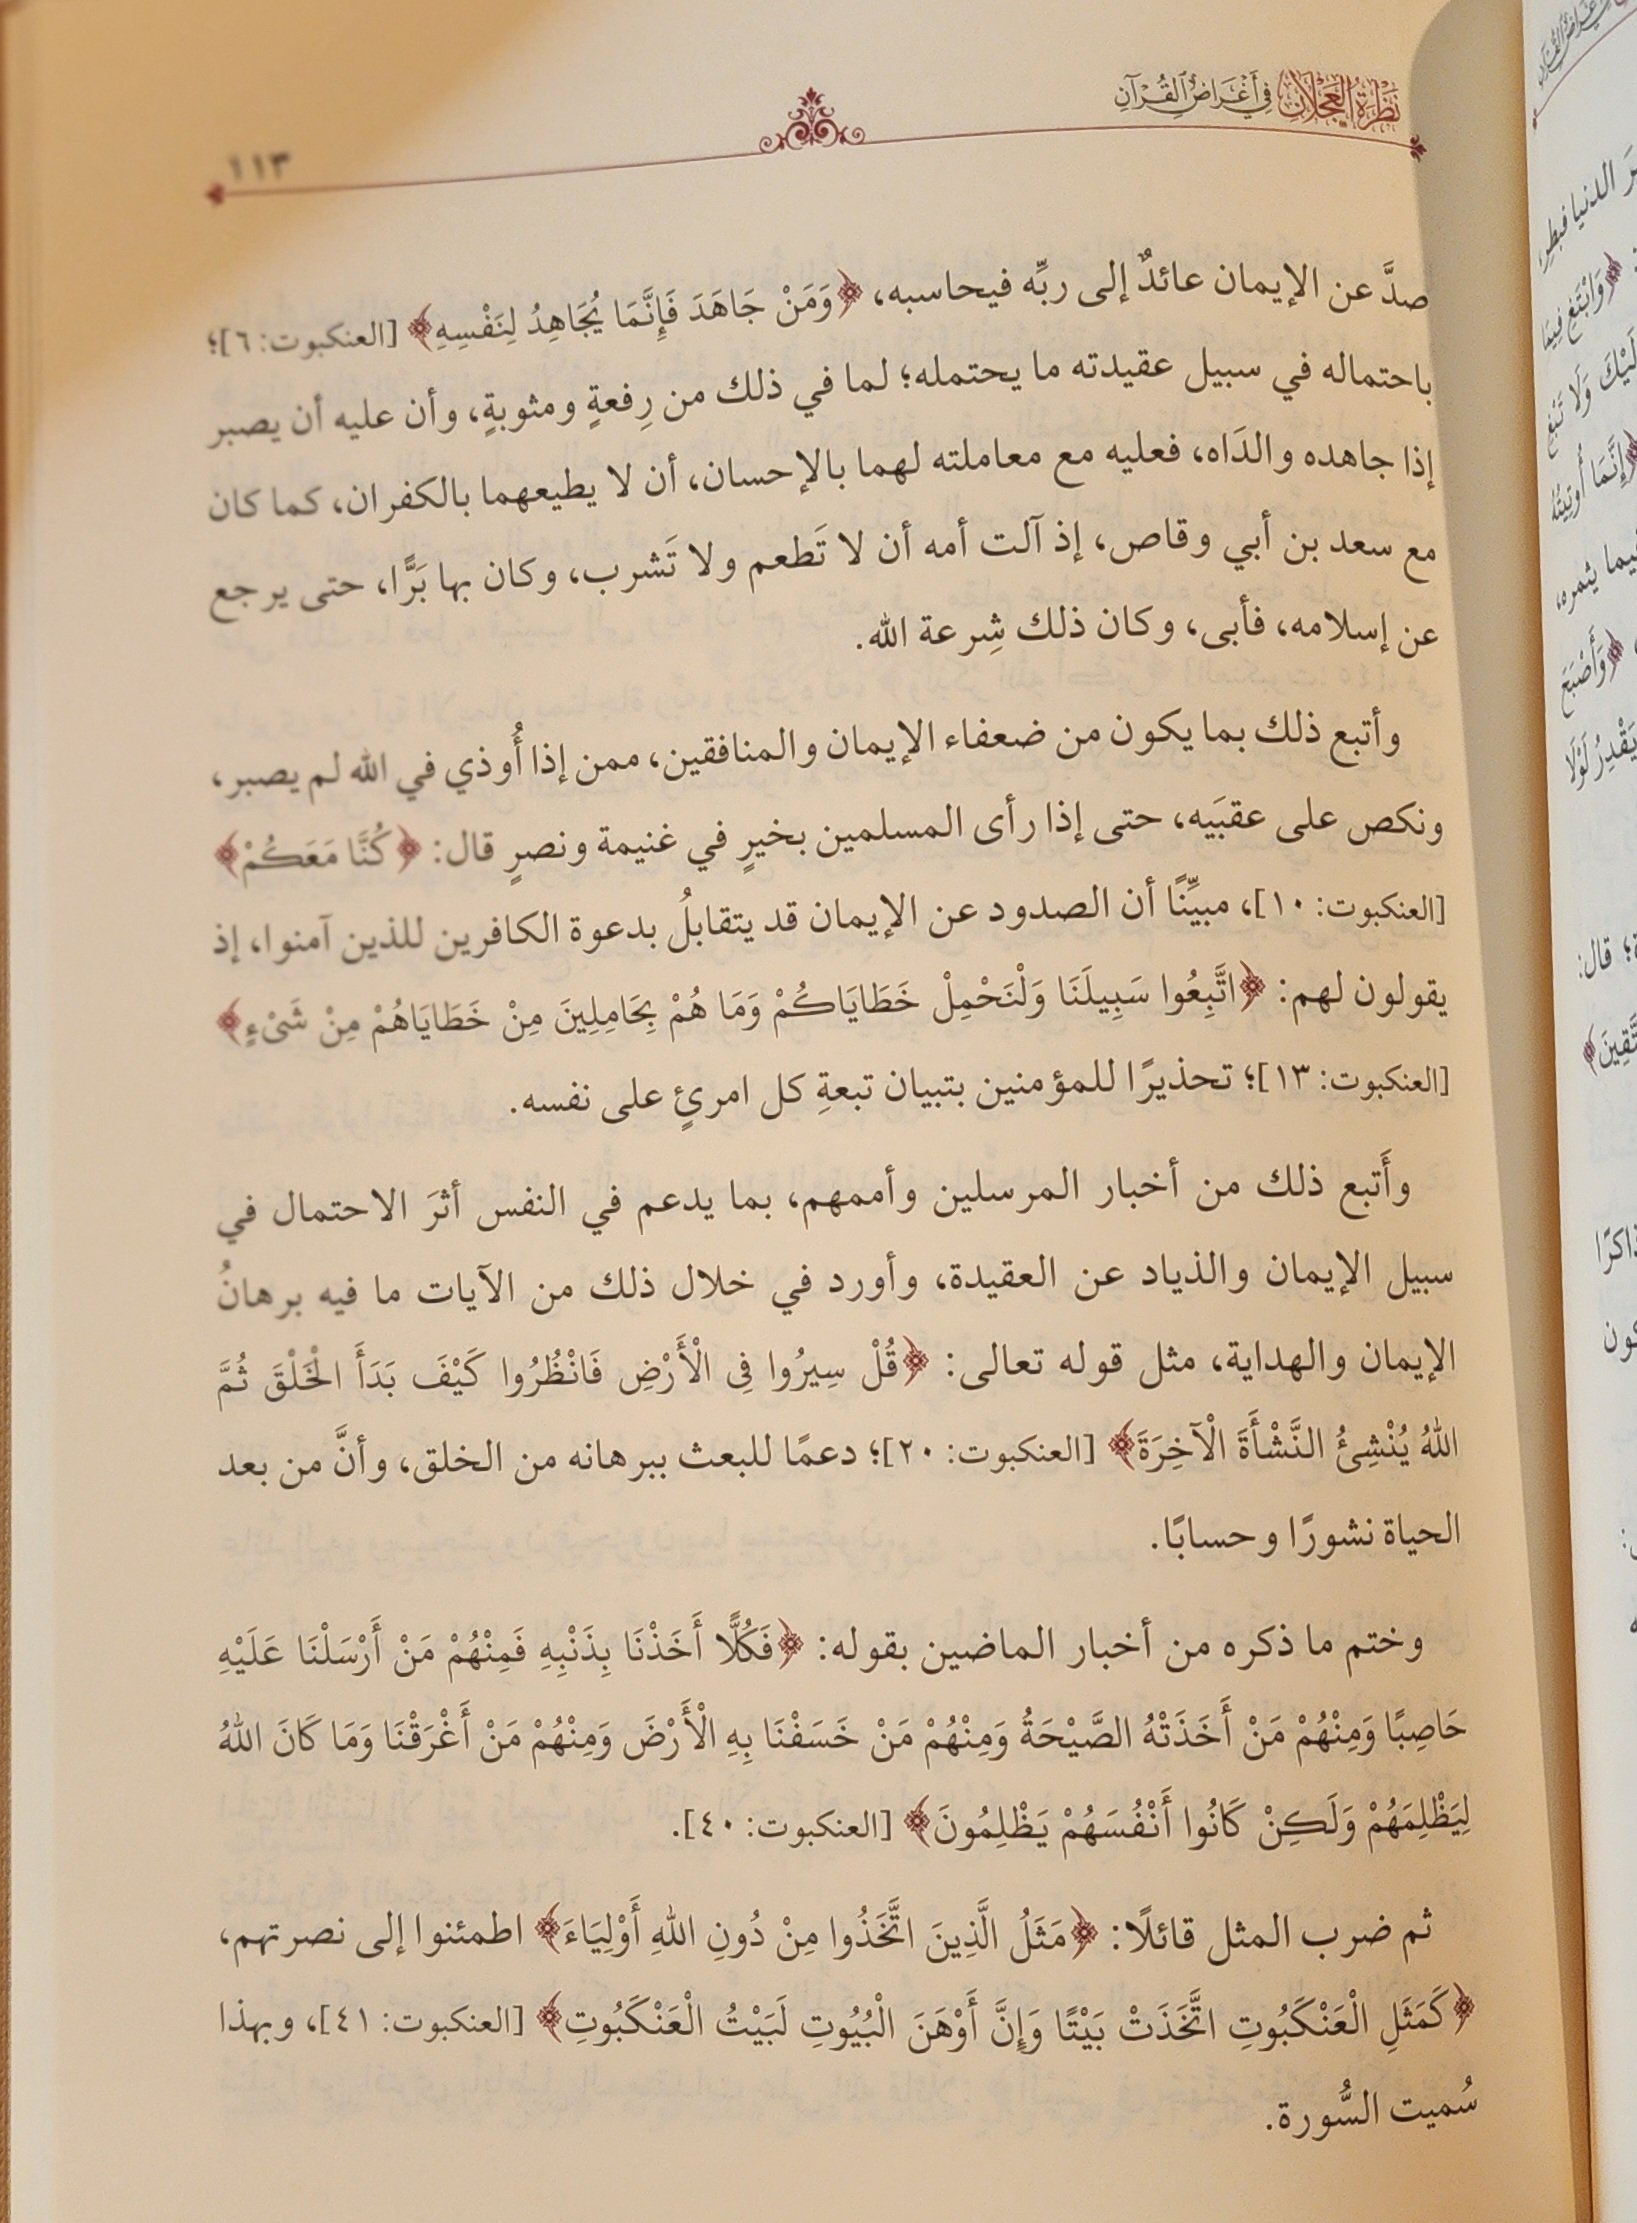 نَظْرَةُ العَجْلَانِ فِي أَغْرَاضِ القُرْآنِ
١١٣
صدَّ عن الإيمان عائدٌ إلى ربِّه فيحاسبه، ﴿وَمَنْ جَاهَدَ فَإِنَّمَا يُجَاهِدُ لِنَفْسِهِ﴾ [العنكبوت: ٦]؛
باحتماله في سبيل عقيدته ما يحتمله؛ لما في ذلك من رِفعةٍ ومثوبةٍ، وأن عليه أن يصبر
إذا جاهده والدَاه، فعليه مع معاملته لهما بالإحسان، أن لا يطيعهما بالكفران، كما كان
مع سعد بن أبي وقاص، إذ آلت أمه أن لا تَطعم ولا تَشرب، وكان بها بَرًّا، حتى يرجع
عن إسلامه، فأبى، وكان ذلك شِرعة الله.
وأتبع ذلك بما يكون من ضعفاء الإيمان والمنافقين، ممن إذا أُوذي في الله لم يصبر،
ونكص على عقبَيه، حتى إذا رأى المسلمين بخيرٍ في غنيمة ونصرٍ قال: ﴿كُنَّا مَعَكُمْ﴾
[العنكبوت: ١٠]، مبيِّنًا أن الصدود عن الإيمان قد يتقابلُ بدعوة الكافرين للذين آمنوا، إذ
يقولون لهم: ﴿اتَّبِعُوا سَبِيلَنَا وَلْنَحْمِلْ خَطَايَاكُمْ وَمَا هُمْ بِحَامِلِينَ مِنْ خَطَايَاهُمْ مِنْ شَىْءٍ﴾
[العنكبوت: ١٣]؛ تحذيرًا للمؤمنين بتبيان تبعةِ كل امرئٍ على نفسه.
وأَتبع ذلك من أخبار المرسلين وأممهم، بما يدعم في النفس أثرَ الاحتمال في
سبيل الإيمان والذياد عن العقيدة، وأورد في خلال ذلك من الآيات ما فيه برهانُ
الإيمان والهداية، مثل قوله تعالى: ﴿قُلْ سِيرُوا فِى الْأَرْضِ فَانْظُرُوا كَيْفَ بَدَأَ الْخَلْقَ ثُمَّ
اللهُ يُنْشِئُ النَّشْأَةَ الْآخِرَةَ﴾ [العنكبوت: ٢٠]؛ دعمًا للبعث ببرهانه من الخلق، وأنَّ من بعد
الحياة نشورًا وحسابًا.
وختم ما ذكره من أخبار الماضين بقوله: ﴿فَكُلًّا أَخَذْنَا بِذَنْبِهِ فَمِنْهُمْ مَنْ أَرْسَلْنَا عَلَيْهِ
حَاصِبًا وَمِنْهُمْ مَنْ أَخَذَتْهُ الصَّيْحَةُ وَمِنْهُمْ مَنْ خَسَفْنَا بِهِ الْأَرْضَ وَمِنْهُمْ مَنْ أَغْرَقْنَا وَمَا كَانَ اللهُ
لِيَظْلِمَهُمْ وَلَكِنْ كَانُوا أَنْفُسَهُمْ يَظْلِمُونَ﴾ [العنكبوت: ٤٠].
ثم ضرب المثل قائلًا: ﴿مَثَلُ الَّذِينَ اتَّخَذُوا مِنْ دُونِ اللهِ أَوْلِيَاءَ﴾ اطمئنوا إلى نصرتهم،
﴿كَمَثَلِ الْعَنْكَبُوتِ اتَّخَذَتْ بَيْتًا وَإِنَّ أَوْهَنَ الْبُيُوتِ لَبَيْتُ الْعَنْكَبُوتِ﴾ [العنكبوت: ٤١]، وبهذا
سُميت السُّورة.